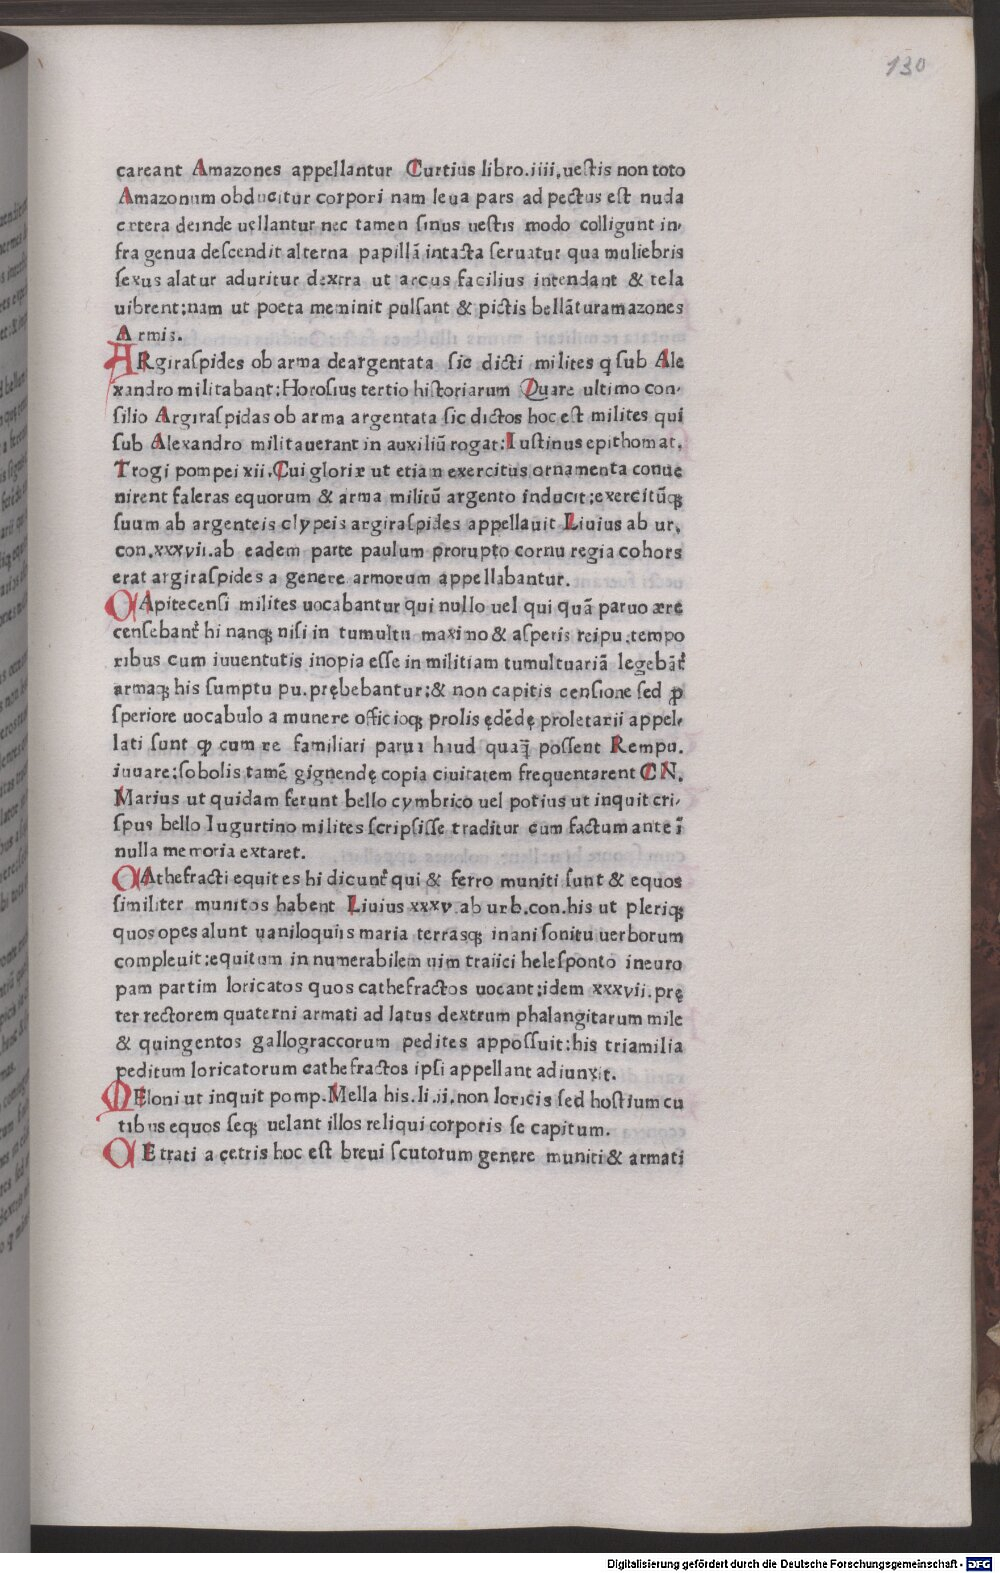 130
careant Amazones appellantur Curtius libro.iiii.uestis non toto
Amazonum obducitur corpori nam leua pars ad pectus est nuda
cetera deinde uellantur nec tamen sinus uestis modo colligunt in,
fra genua descendit alterna papillā intacta seruatur qua muliebris
sexus alatur aduritur dextra ut arcus facilius intendant & tela
uibrent:nam ut poeta meminit pulsant & pictis bellāturamazones
Armis.
ARgiraspides ob arma deargentata sic dicti milites q sub Ale
xandro militabant:Horosius tertio historiarum Quare ultimo con-
silio Argiraspidas ob arma argentata sic dictos hoc est milites qui
sub Alexandro militauerant in auxiliū rogat:Iustinus epithomat.
Trogi pompei xii.Cui gloriæ ut etiam exercitus ornamenta conue
nirent faleras equorum & arma militū argento inducit:exercitūqꝫ
suum ab argenteis clypeis argiraspides appellauit Liuius ab ur.
con.xxxvii.ab eadem parte paulum prorupto cornu regia cohors
erat argiraspides a genere armorum appellabantur.
CApitecensi milites uocabantur qui nullo uel qui quā paruo ære
censebant' hi nanqꝫ nisi in tumultu maximo & asperis reipu.tempo
ribus cum iuuentutis inopia esse in militiam tumultuariā legebāt'
armaqꝫ his sumptu pu.prębebantur:& non capitis censione sed ꝓ
speriore uocabulo a munere officioqꝫ prolis ędēdę proletarii appel-
lati sunt ꝙ cum re familiari parui haud quaq̄ possent Rempu.
iuuare:sobolis tamē gignendę copia ciuitatem frequentarent CN.
Marius ut quidam ferunt bello cymbrico uel potius ut inquit cri-
spus bello Iugurtino milites scripsisse traditur cum factum ante ī
nulla memoria extaret.
CAthefracti equites hi dicunt' qui & ferro muniti sunt & equos
similiter munitos habent Liuius xxxv.ab urb.con.his ut pleriqꝫ
quos opes alunt uaniloquiis maria terrasqꝫ inani sonitu uerborum
compleuit:equitum innumerabilem uim traiici helesponto ineuro
pam partim loricatos quos cathefractos uocant:idem xxxvii.prę
ter rectorem quaterni armati ad latus dextrum phalangitarum mile
& quingentos gallograccorum pedites appossuit:his triamilia
peditum loricatorum cathefractos ipsi appellant adiunxit.
MEloni ut inquit pomp.Mella his.li.ii.non loricis sed hostium cu
tibus equos seqꝫ uelant illos reliqui corporis se capitum.
CEtrati a cetris hoc est breui scutorum genere muniti & armati
Digitalisierung gefördert durch die Deutsche Forschungsgemeinschaft - DFG